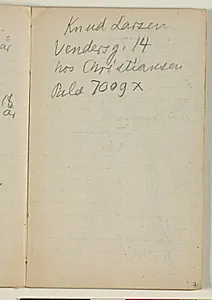 Knud Larsen
Vendersg. 14
hos Christiansen
Palæ 7009x
år
18
år